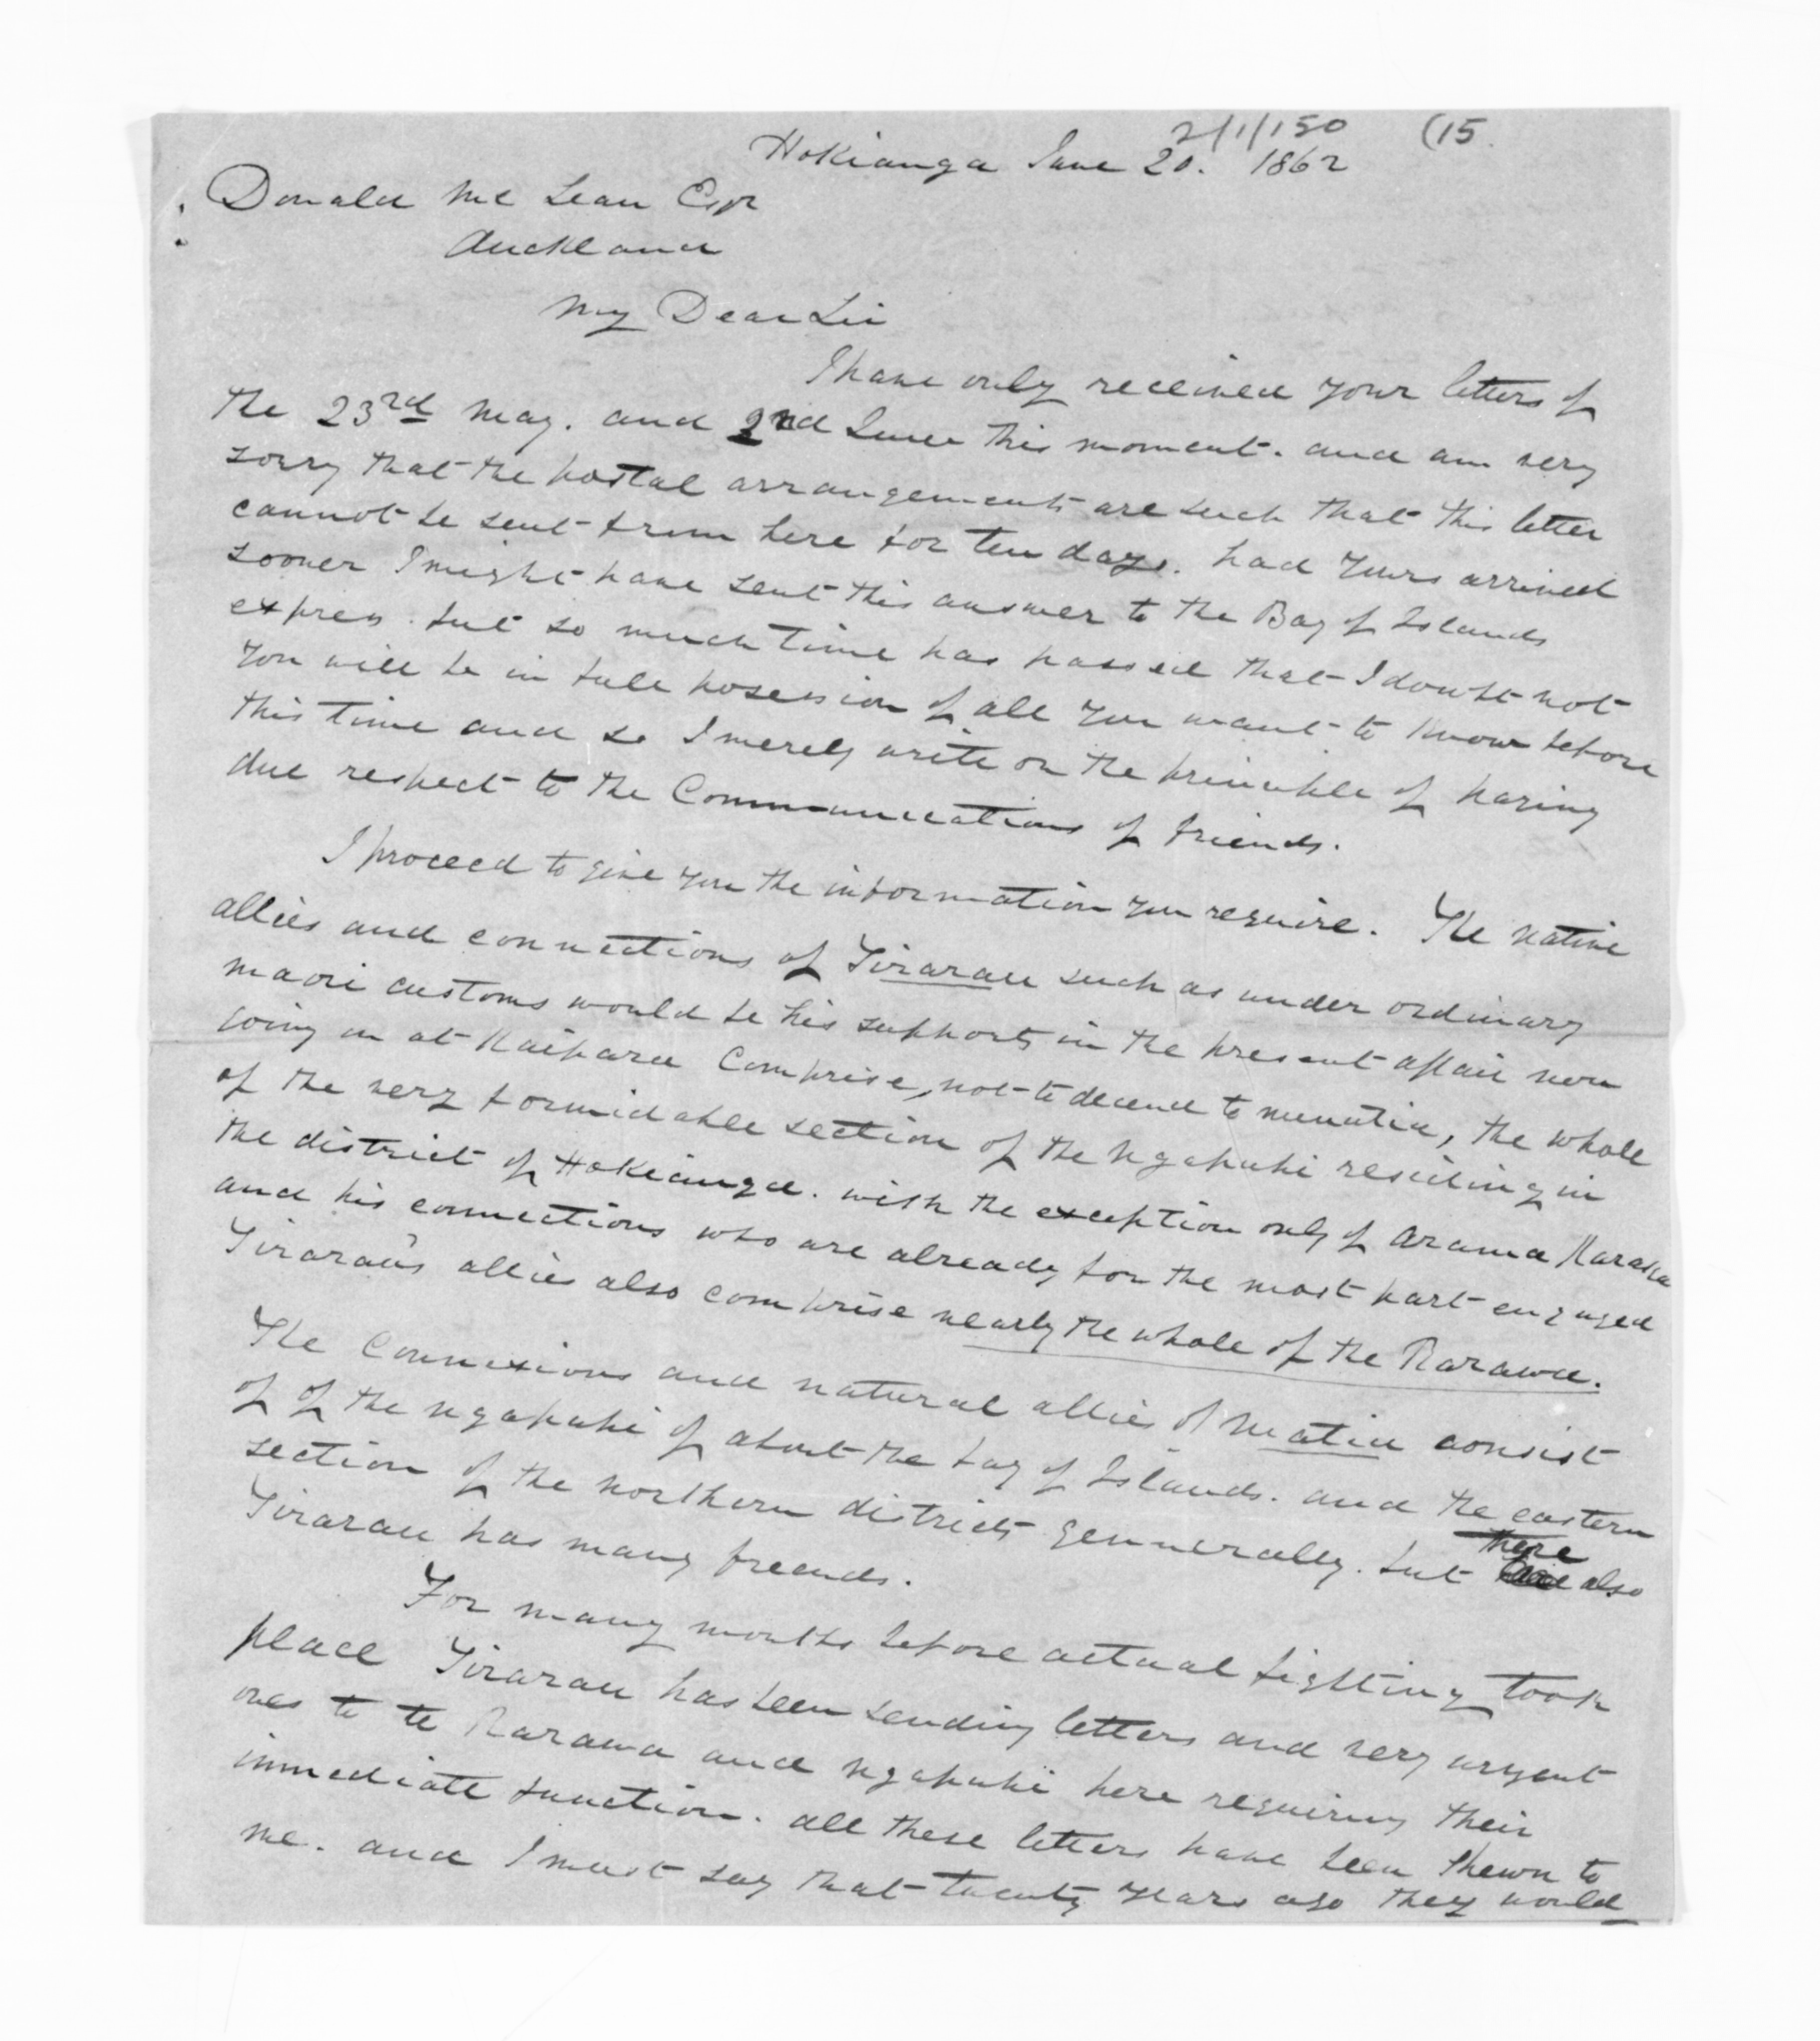 2/1/150 (15
Hokianga June 20. 1862
Donald Mc Lean Esqr
Auckland
My Dear Sir
I have only received your letters of
the 23rd May. and 2nd June this moment. and am very
sorry that the postal arrangements are such that this letter
cannot be sent from here for ten days. had yours arrived
sooner I might have sent this answer to the Bay of Islands
express. but so much time has passed that I doubt not
you will be in full posession of all you want to know before
this time and so I merely write on the principle of paying
due respect to the Communications of friends.
I proceed to give you the information you require. The native
allies and connections of Tirarau such as under ordinary
maori customs would be his supports in the present affair now
going on at Kaipara Comprise, not to decend to minutia, the whole
of the very formidable section of the Ngapuhi residing in
the district of Hokianga. with the exception only of Arama Karaka
and his connections who are already for the most part engaged
Tirarau's allies also comprise nearly the whole of the Rarawa.
The Connexions and natural allies of Matiu consist
of of the Ngapuhi of about the bay of Islands. and the eastern
section of the northern districts gennerally. but there also
Tirarau has many freends.
For many months before actual fighting took
place Tirarau has been sending letters and very urgent
ones to te Rarawa and Ngapuhi here requiring their
immediate function. all these letters have been shewn to
me. and I must say that twenty years ago they would